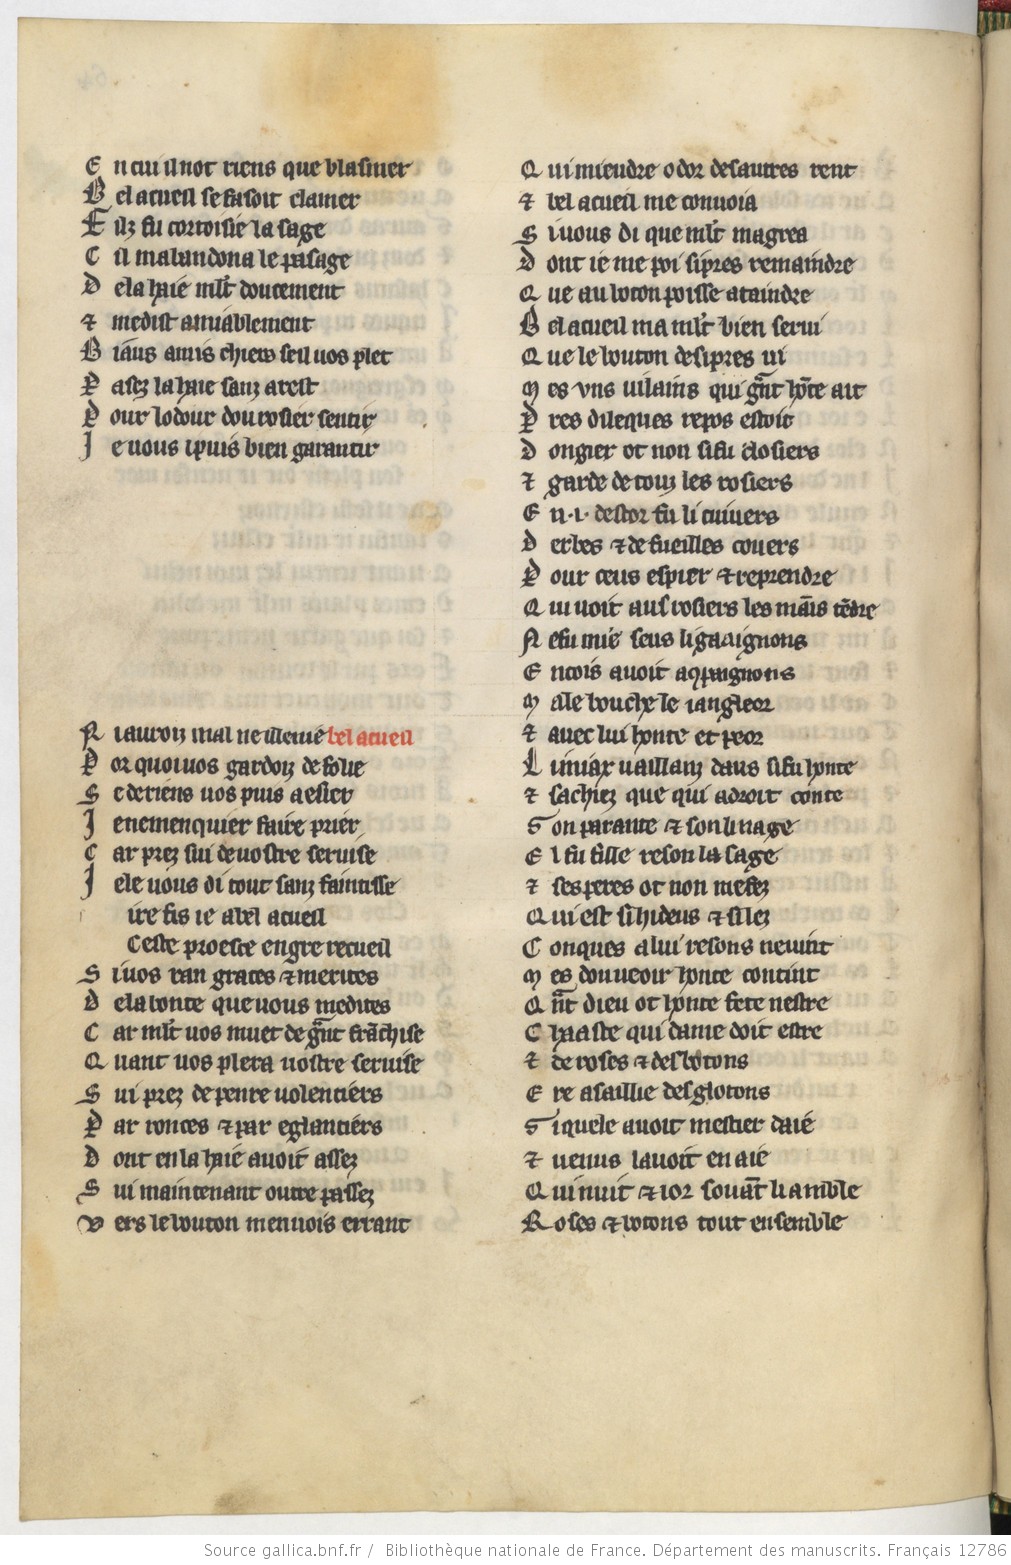 E n cui il not riens que blasmer
B el acueil se fasoit clamer
F ilz fu cortoisie la sage
C il mabandona le passage
D e la haie mlt doucement
⁊ me dist amiablement
B iaus amis chiers seil vos plet
P asez la haie sanz arest
P our lodour dou rosier sentir
J e vous i puis bien garantir
N i auroiz mal ne vilenie bel acueil
P or quoi vos gardoiz de folie
S e de riens vos puis aesier
J e ne men quier faire prier
C ar prez sui de vostre servise
J e le vous di tout sanz faintisse
ire fis ie a bel acueil
Ceste promesse en gre recueil
S i vos ran graces ⁊ merites
D e la bonte que vous me dites
C ar mlt vos muet de grant franchise
Q uant vos plera vostre servise
S ui prez de penre volentiers
P ar ronces ⁊ par eglantiers
D ont en la haie avoit assez
S ui maintenant outre passez
V ers le bouton men vois errant
Q ui miendre odor des autres rent
⁊ bel acueil me convoia
S i vous di que mlt magrea
D ont ie me poi si pres remaindre
Q ue au boton poisse ataindre
B el acueil ma mlt bien servi
Q ue le bouton de si pres vi
M es vns vilains qui grant honte ait
P res dileques repos estoit
D ongier ot non si fu closiers
⁊ garde de touz les rosiers
E n .i. destor fu li cuivers
D erbes ⁊ de fueilles covers
P our ceus espier ⁊ reprendre
Q ui voit aus rosiers les mains tendre
N e fu mie seus li gaaignons
E ncois avoit a compaignons
M ale bouche le iangleor
⁊ avec lui honte et peor
L i miax vaillanz daus si fu honte
⁊ sachiez que qui a droit conte
S on parante ⁊ son linage
E l fu fille reson la sage
⁊ ses peres ot non mefez
Q ui est si hideus ⁊ si lez
C onques a lui resons ne vint
M es dou veoir honte contint
Q nt dieu ot honte fete nestre
C haaste qui dame doit estre
⁊ de roses ⁊ des botons
E re asaillie des glotons
S i quele avoit mestier daie
⁊ venus lavoit en aie
Q ui nuit ⁊ ior souant li amble
R oses ⁊ botons tout ensemble
Source gallica.bnf.fr / Bibliothèque nationale de France. Département des manuscrits. Français 12786